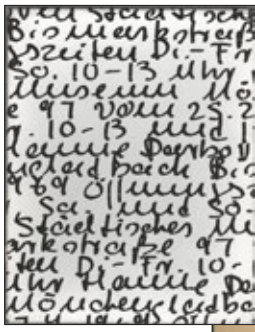 Städtische
Bismarckstraß
szeiten Di.-Fr
So. 10-13 Uhr
Museum Mö
e 97 vom 25.2
. 10-13 und 1
Hanne Darbov
ncladbach Bis
969 Öffnungsz
Sa. und So.
Städtisches M
rkstraße 97
iten Di.-Fr. 10-
Uhr Hanne Da
Mönchengladba